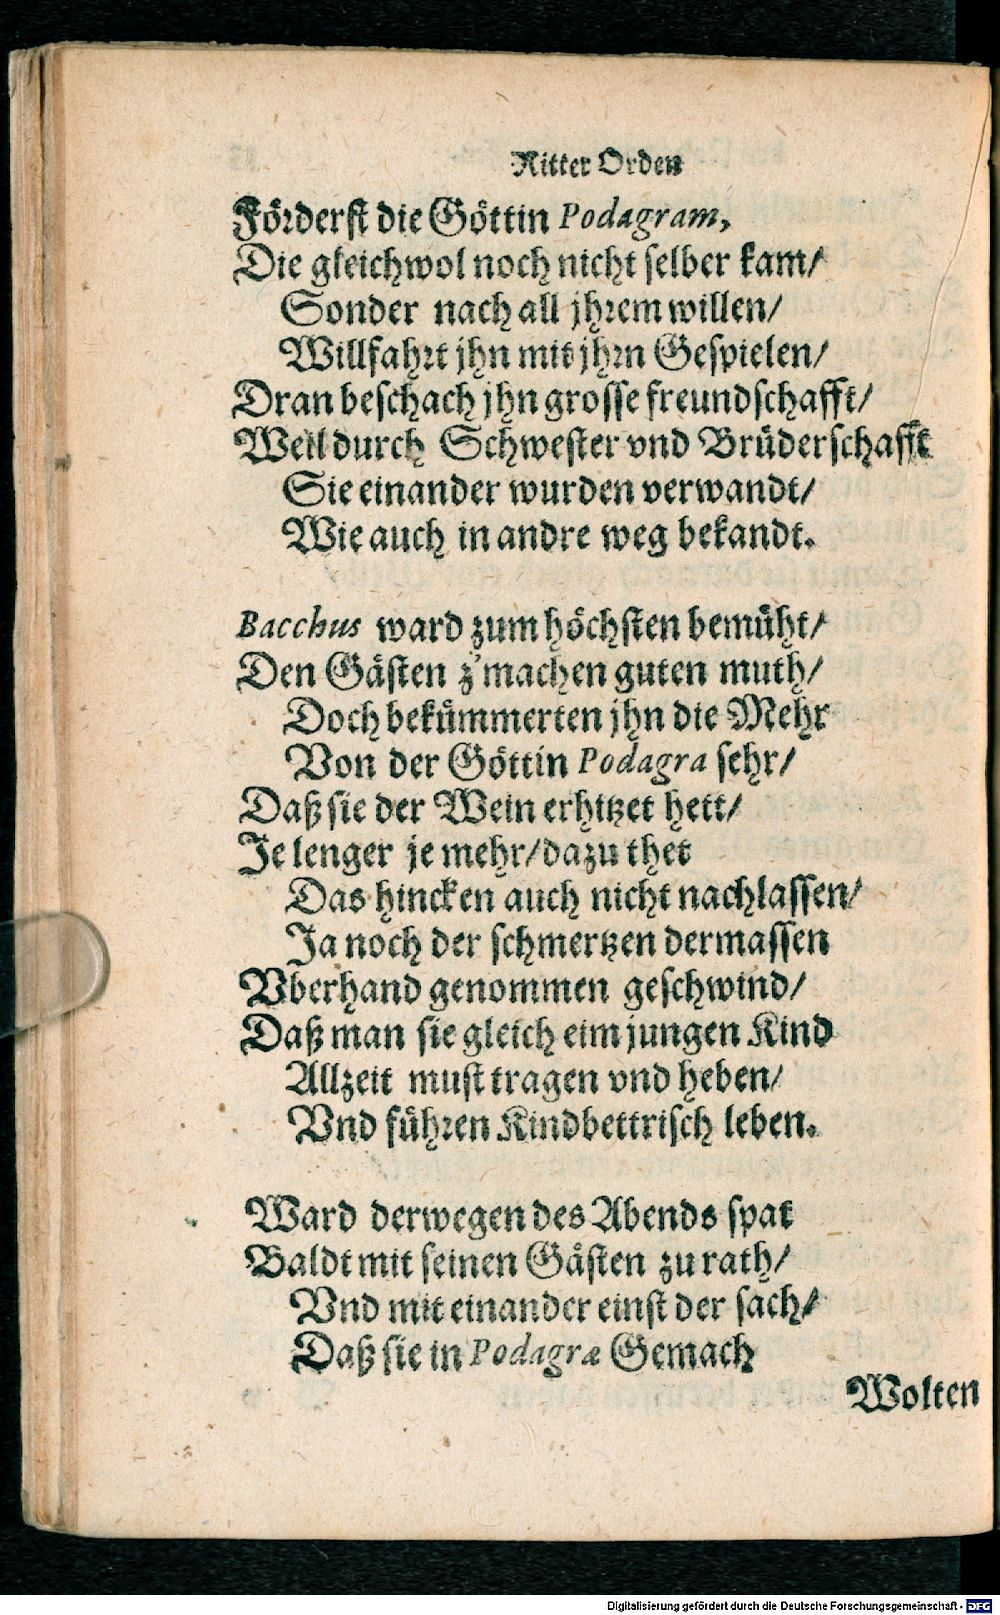 Ritter Orden
Förderst die Göttin Podagram,
Die gleichwol noch nicht selber kam/
Sonder nach all jhrem willen/
Willfahrt jhn mit jhrn Gespielen/
Dran beschach jhn grosse freundschafft/
Weil durch Schwester vnd Brüderschafft
Sie einander wurden verwandt/
Wie auch in andre weg bekandt.
Bacchus ward zum höchsten bemüht/
Den Gästen z'machen guten muth/
Doch bekümmerten jhn die Mehr
Von der Göttin Podagra sehr/
Daß sie der Wein erhitzet hett/
Je lenger je mehr/dazu thet
Das hincken auch nicht nachlassen/
Ja noch der schmertzen dermassen
Vberhand genommen geschwind/
Daß man sie gleich eim jungen Kind
Allzeit must tragen vnd heben/
Vnd führen Kindbettrisch leben.
Ward derwegen des Abends spat
Baldt mit seinen Gästen zu rath/
Vnd mit einander einst der sach/
Daß sie in Podagræ Gemach
Wolten
Digitalisierung gefördert durch die Deutsche Forschungsgemeinschaft - DFG